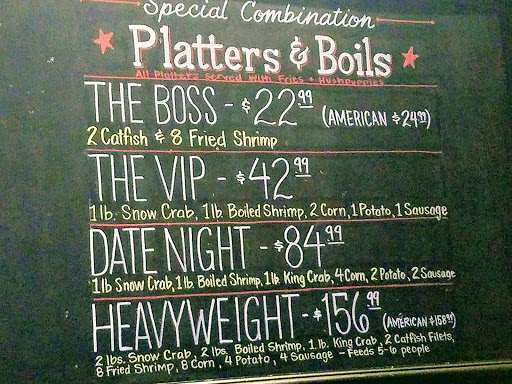 Special Combination
Platters & Boils
All Platters Served With Fries + Hushpuppies
THE BOSS - $22.99 (AMERICAN $24.99)
2 Catfish & 8 Fried Shrimp
THE VIP - $42.99
1 lb. Snow Crab, 1 lb. Boiled Shrimp, 2 Corn, 1 Potato, 1 Sausage
DATE NIGHT - $84.99
1 lb Snow Crab, 1 lb. Boiled Shrimp, 1 lb King Crab, 4 Corn, 2 Potato, 2 Sausage
HEAVYWEIGHT - $156.99 (AMERICAN $158.99)
2 lbs. Snow Crab, 2 lbs. Boiled Shrimp, 1. lb. King Crab, 2 Catfish Filets,
8 Fried Shrimp, 8 Corn, 4 Potato, 4 Sausage - Feeds 5-6 people